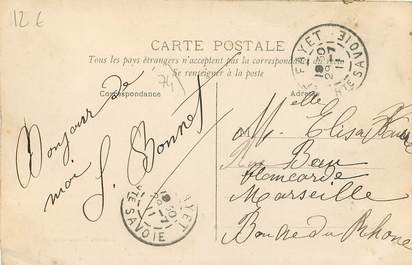 12 €
CARTE POSTALE
Tous les pays étrangers n'acceptent pas la correspondance
Se renseigner à la poste
Correspondance
Adresse
74
Bonjour de
moi S. Bonnet
Melle Elisa
Beau
Marseille
Bouche du Rhone
FAYET
HTE SAVOIE
FAYET
HTE SAVOIE